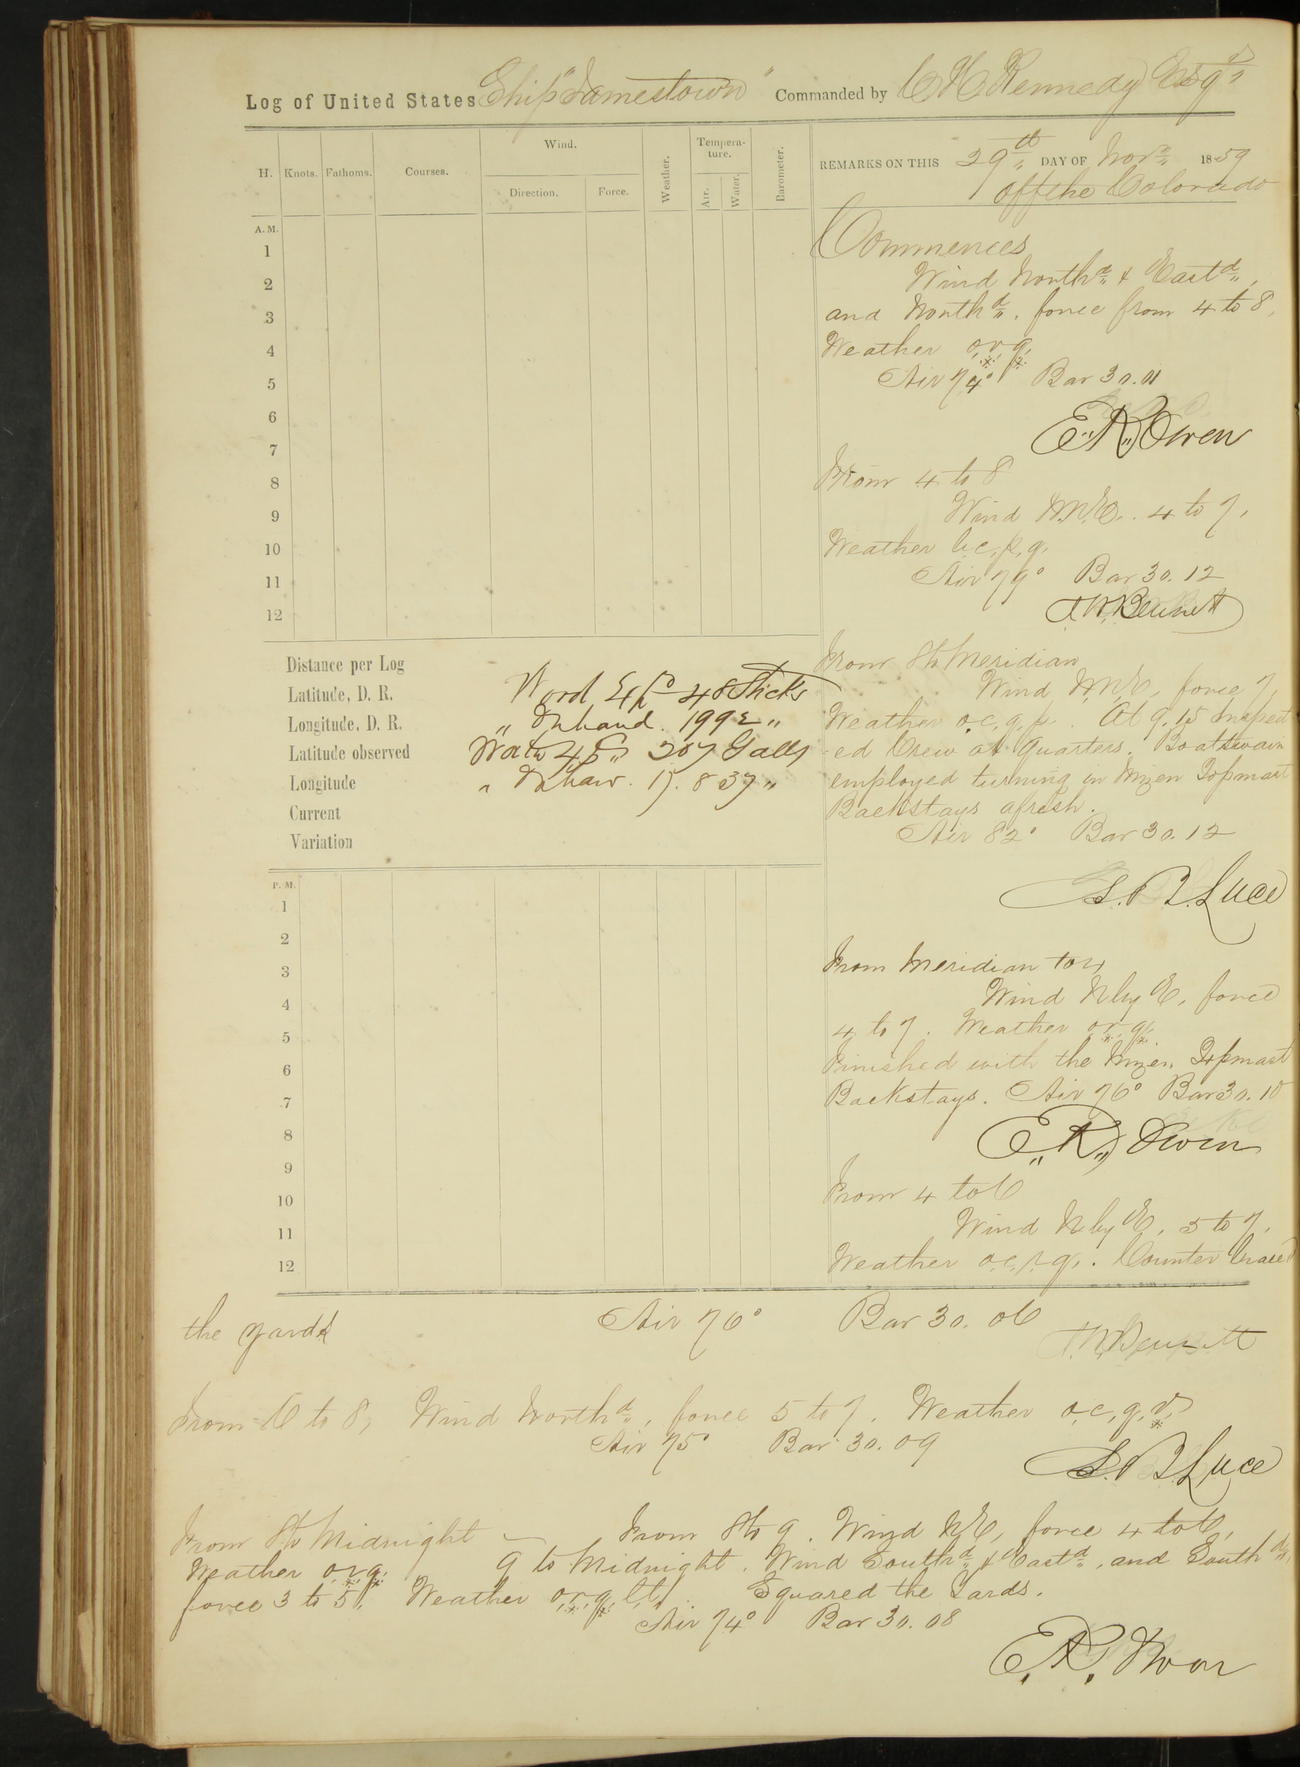 Log of United States Ship "Jamestown" Commanded by C H Kennedy Esqr
H. Knots. Fathoms. Courses. Wind. Direction. Force. Weather. Tempera-ture. Air. Water. Barometer.
REMARKS ON THIS 29th DAY OF Novr 1859
off the Colorado
A. M.
1
2
3
4
5
6
7
8
9
10
11
12
Commences
Wind Northd & Eastd,
and Northd. force from 4 to 8,
Weather o,r,q,
Air 74° Bar 30.01
E. R. Owen
From 4 to 8
Wind N.N.E. 4 to 7,
Weather b.c,p,q.
Air 79° Bar 30.12
J. W. Bennett
Distance per Log
Latitude, D. R.
Longitude, D. R.
Latitude observed
Longitude
Current
Variation
Wood Expd 48 Sticks
" On hand. 1992 "
Water Expd 207 Galls
" On hand. 17.837 "
From 8 to Meridian
Wind N.N.E, force 7,
Weather o.c,q,p. At 9.15 Inspect-
ed Crew at Quarters. Boatswain
employed turning in Mizen Topmast
Backstays afresh.
Air 82° Bar 30.12
S. B. Luce
P. M.
1
2
3
4
5
6
7
8
9
10
11
12
From Meridian to 4
Wind N by E, force
4 to 7. Weather o,r,q,
Finished with the Mizen Topmast
Backstays. Air 76° Bar 30.10
E. R. Owen
From 4 to 6
Wind N by E, 5 to 7,
Weather o.c,r,q,. Counter braced
the yards Air 76° Bar 30.06
J. W. Bennett
From 6 to 8, Wind Northd, force 5 to 7. Weather o,c,q,r,
Air 75° Bar 30.09
S. B. Luce
From 8 to Midnight — From 8 to 9. Wind N,E, force 4 to 6,
Weather o,r,q, 9 to Midnight. Wind Southd & Eastd, and Southd,
force 3 to 5, Weather o,r,q,l,t, Squared the Yards.
Air 74° Bar 30.08
E. R. Owen